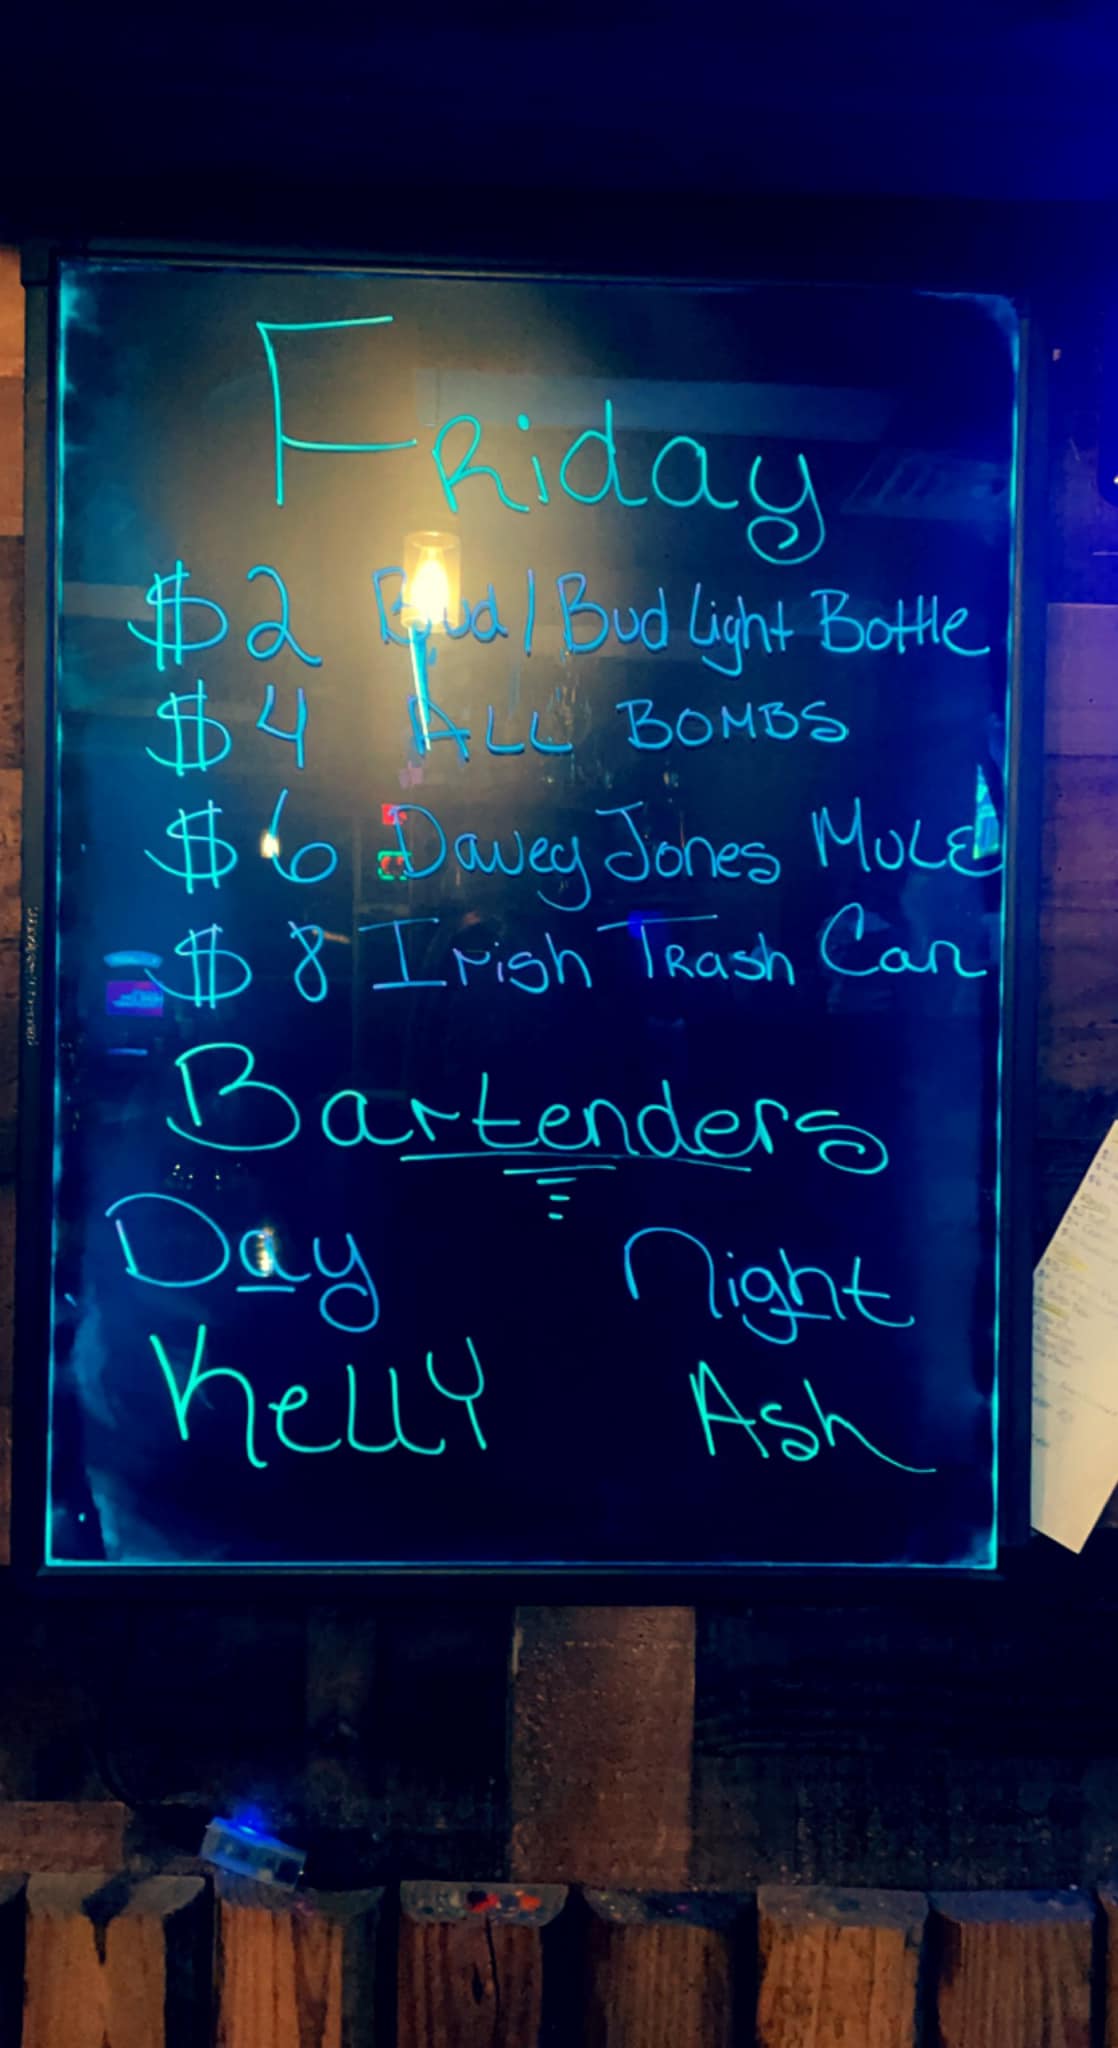 Friday
$2 Bud/Bud Light Bottle
$4 ALL BOMBS
$6 Davey Jones MULE
$8 Irish Trash Can
Bartenders
Day Night
Kelly Ash